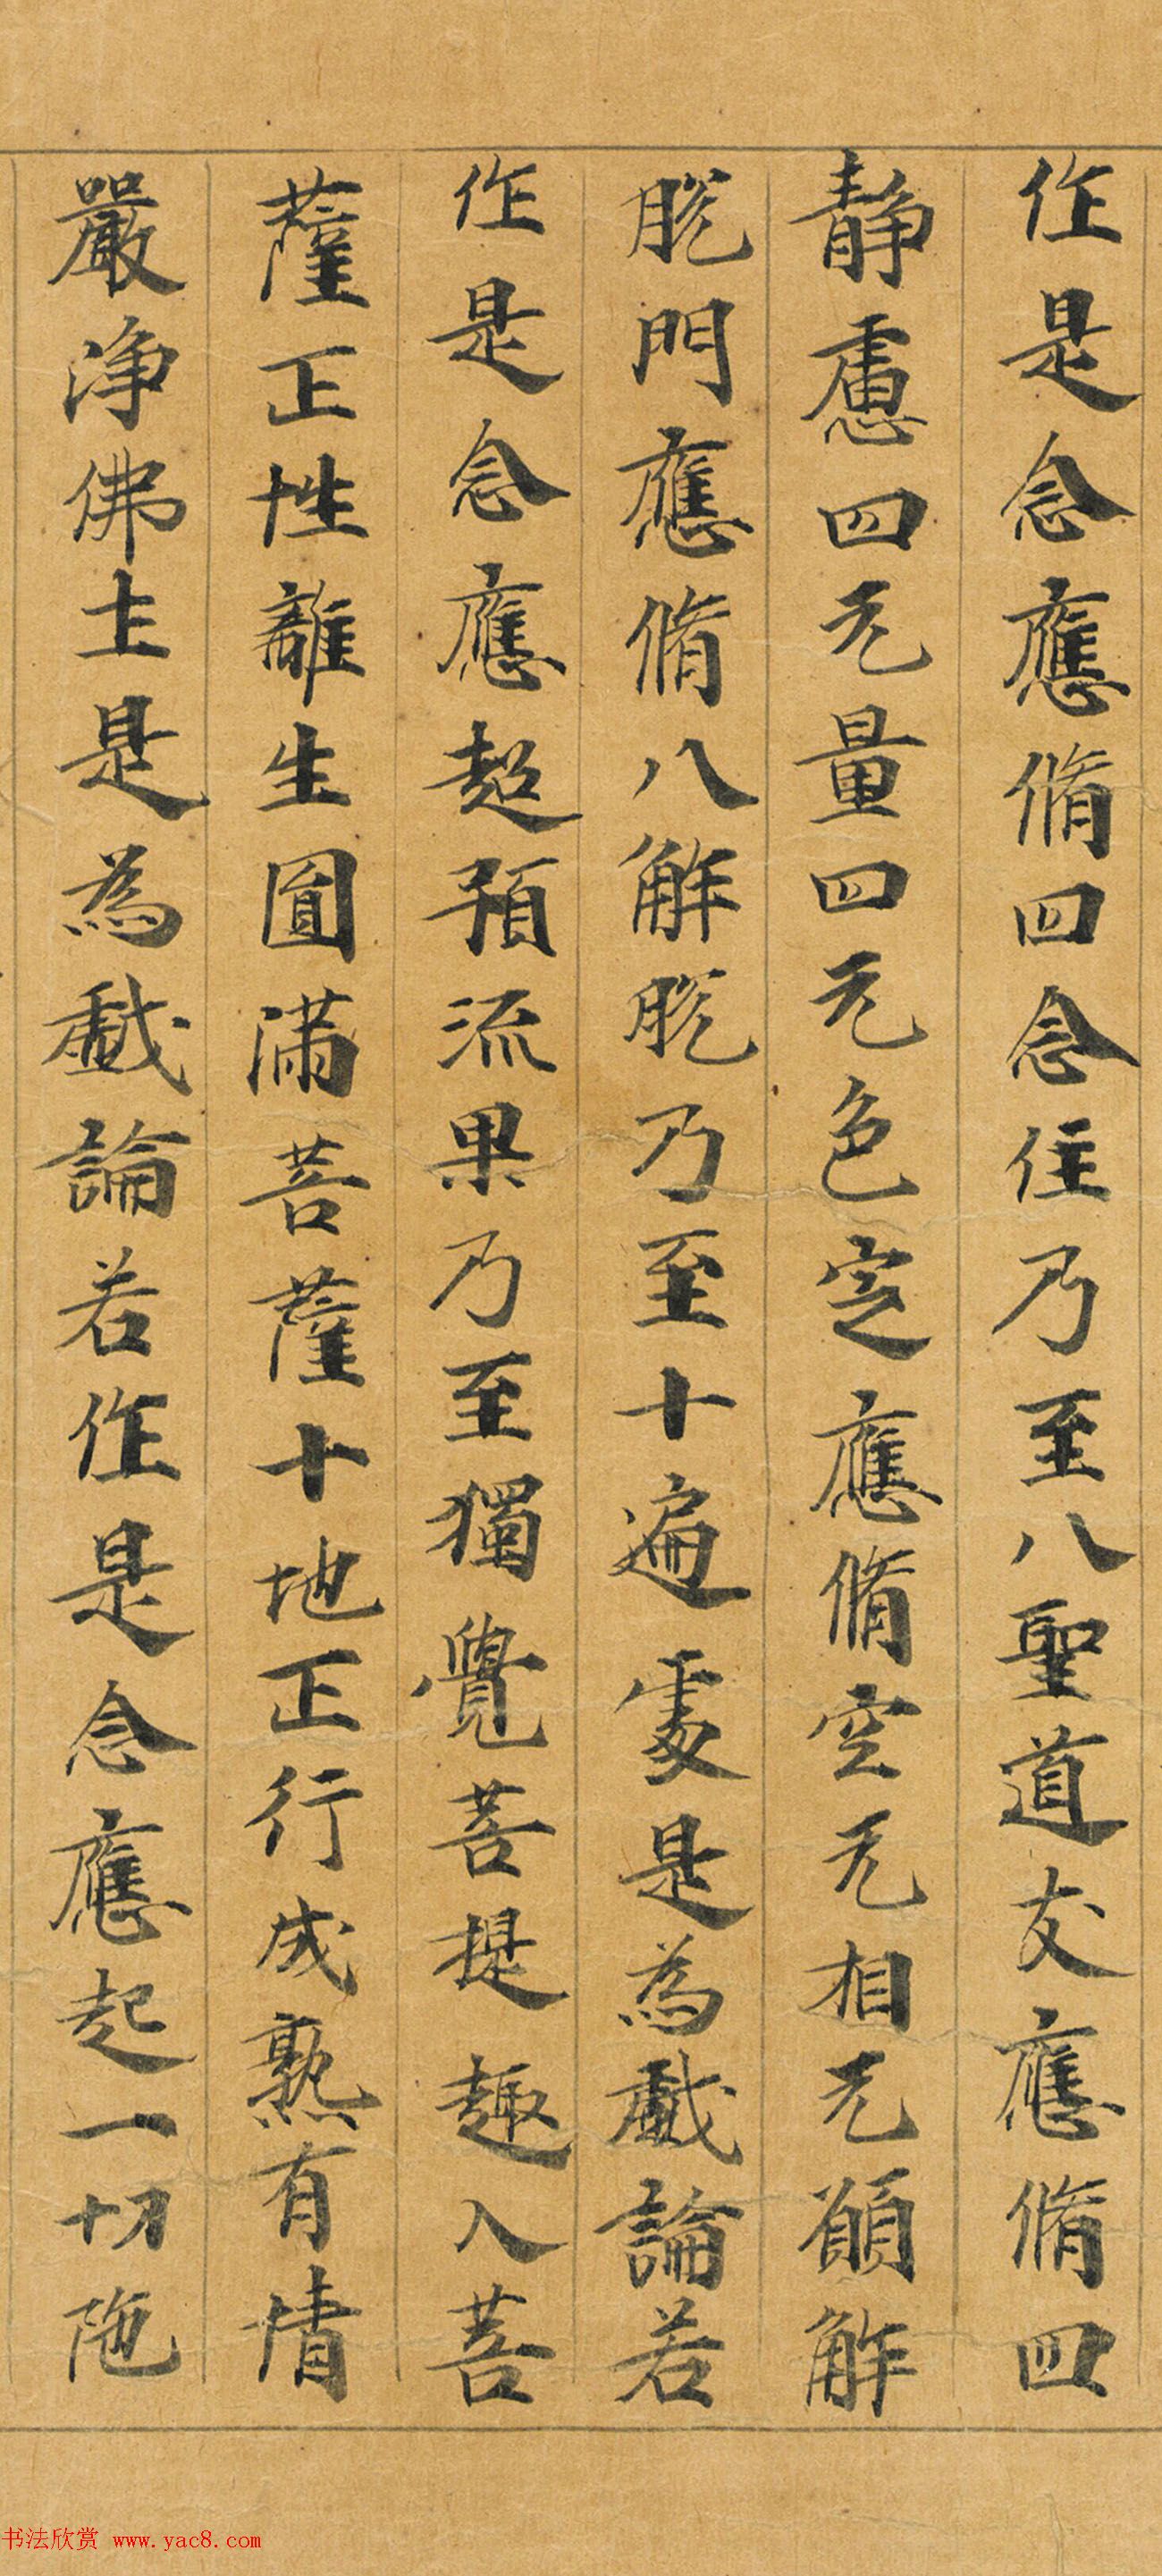 作是念應脩四念住乃至八聖道支應脩四
靜慮四无量四无色定應脩空无相无願解
脫門應脩八解脫乃至十遍處是為戲論若
作是念應超預流果乃至獨覺菩提趣入菩
薩正性離生圓滿菩薩十地正行成熟有情
嚴淨佛土是為戲論若作是念應起一切陁
书法欣赏 www.yac8.com